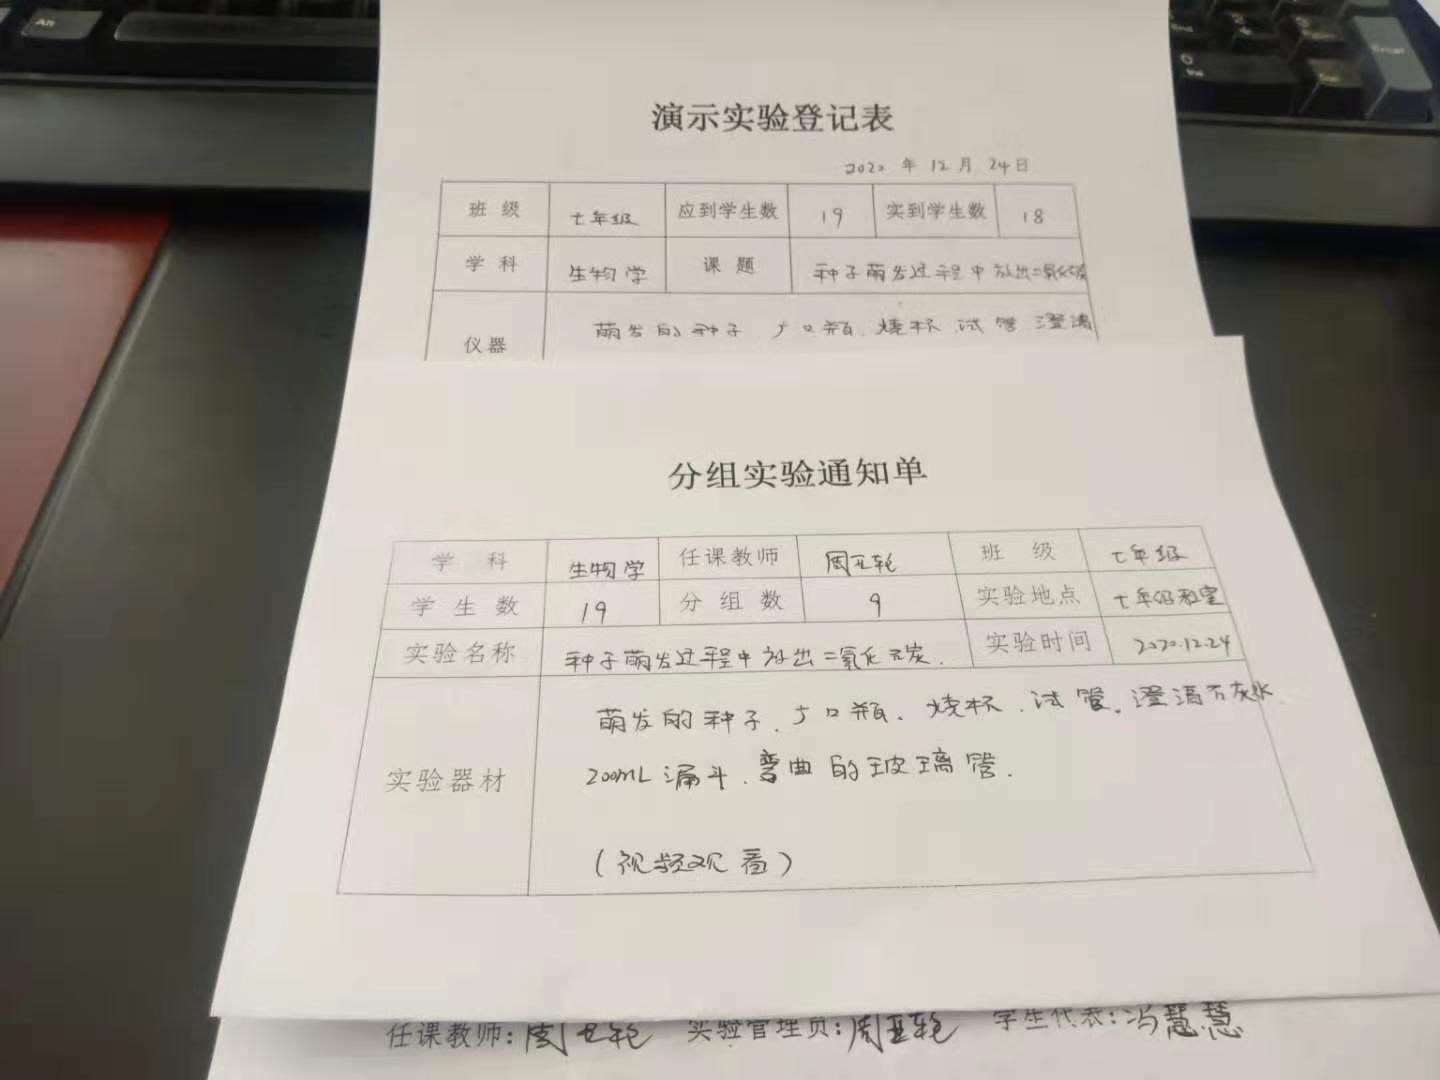 演示实验登记表
2020 年 12 月 24日
班 级 七年级 应到学生数 19 实到学生数 18
学 科 生物学 课 题 种子萌发过程中放出二氧化碳
仪器 萌发的种子、广口瓶、烧杯、试管、澄清
分组实验通知单
学 科 生物学 任课教师 周亚轮 班 级 七年级
学 生 数 19 分 组 数 9 实验地点 七年级教室
实验名称 种子萌发过程中放出二氧化碳. 实验时间 2020.12.24
实验器材 萌发的种子、广口瓶、烧杯、试管、澄清石灰水
200mL漏斗、弯曲的玻璃管.
(视频观看)
任课教师:周亚轮 实验管理员:周亚轮 学生代表:冯慧慧
Alt
Enter